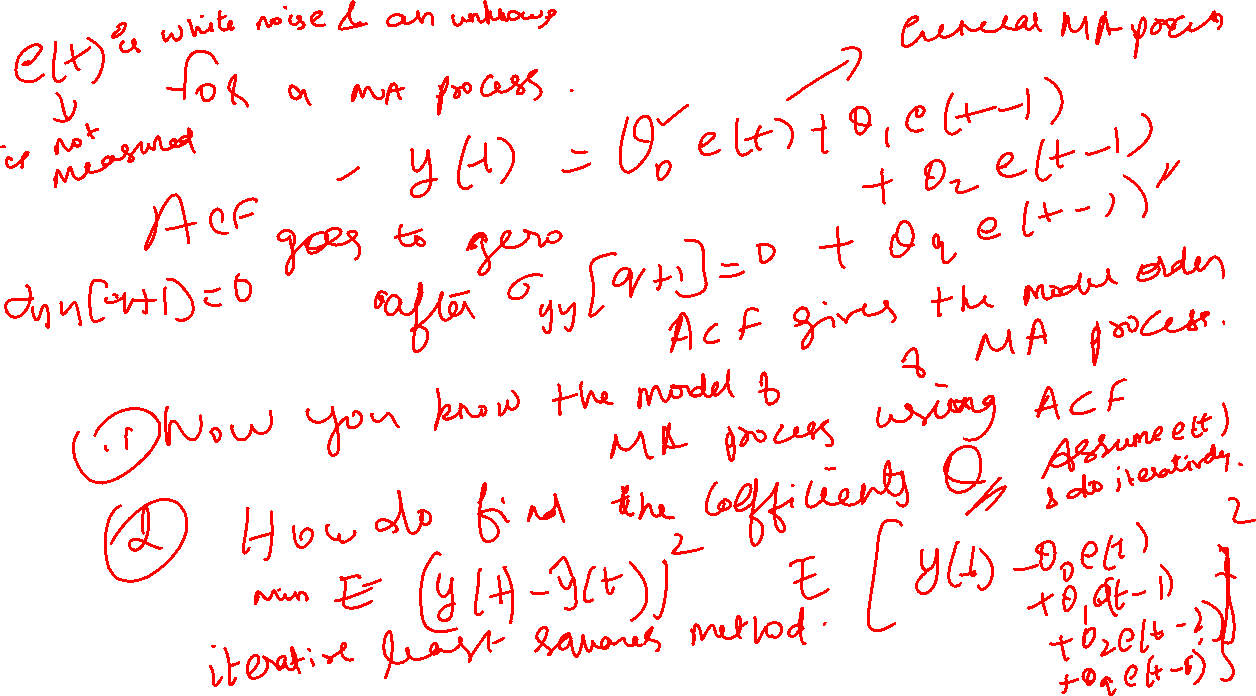 e(t) is white noise & an unknown
for a MA process.
↓
is not
measured
General MA process
y(t) = θ₀ e(t) + θ₁ e(t-1)
+ θ₂ e(t-1)
+ θq e(t-1)
ACF goes to zero
after σyy[q+1]=0
σyy[q+1]=0
ACF gives the model order
of MA process.
① Now you know the model of
MA process using ACF
② How do find the coefficients θ
Assume e(t)
& do iteratively.
min E (y(t)-ŷ(t))²
E [y(t) -θ₀e(t)
+θ₁e(t-1)
+θ₂e(t-2)
+θq e(t-1)]²
iterative least squares method.